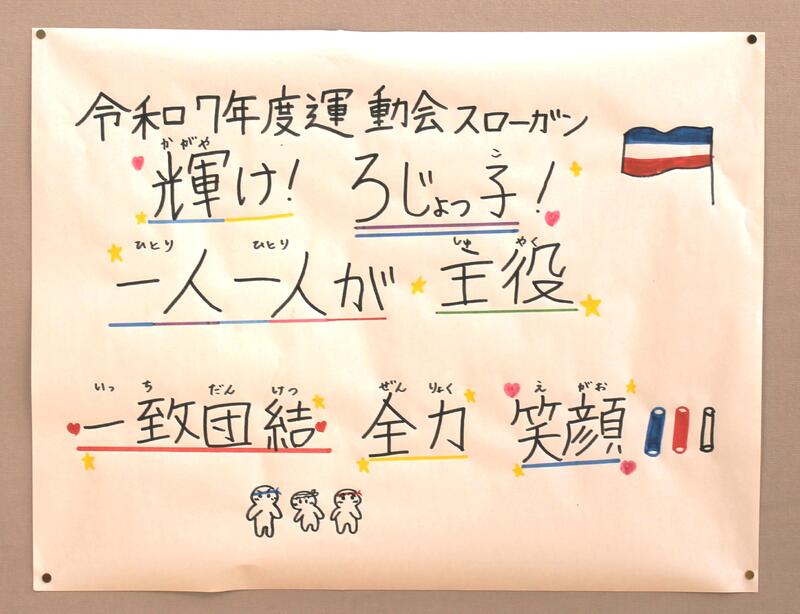 令和7年度運動会スローガン
かがや こ
輝け! ろじょっ子!
ひとり ひとり しゅ やく
一人一人が 主役
いっ ち だん けつ ぜん りょく え がお
一致団結 全力 笑顔